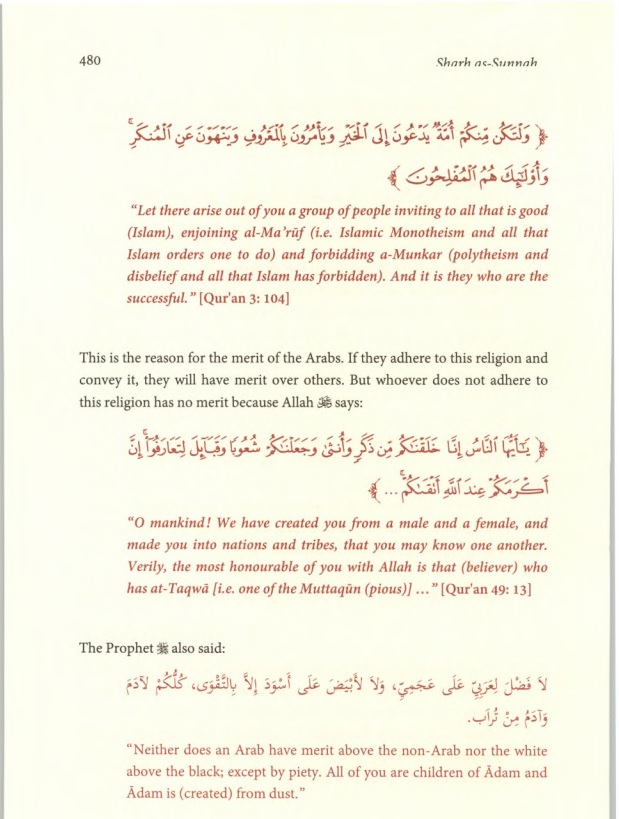 480 Sharh as-Sunnah
﴿ وَلْتَكُن مِّنكُمْ أُمَّةٌ يَدْعُونَ إِلَى ٱلْخَيْرِ وَيَأْمُرُونَ بِٱلْمَعْرُوفِ وَيَنْهَوْنَ عَنِ ٱلْمُنكَرِ ۚ
وَأُو۟لَـٰٓئِكَ هُمُ ٱلْمُفْلِحُونَ ﴾
“Let there arise out of you a group of people inviting to all that is good
(Islam), enjoining al-Ma’rūf (i.e. Islamic Monotheism and all that
Islam orders one to do) and forbidding a-Munkar (polytheism and
disbelief and all that Islam has forbidden). And it is they who are the
successful.” [Qur'an 3: 104]
This is the reason for the merit of the Arabs. If they adhere to this religion and
convey it, they will have merit over others. But whoever does not adhere to
this religion has no merit because Allah says:
﴿ يَـٰٓأَيُّهَا ٱلنَّاسُ إِنَّا خَلَقْنَـٰكُم مِّن ذَكَرٍ وَأُنثَىٰ وَجَعَلْنَـٰكُمْ شُعُوبًا وَقَبَآئِلَ لِتَعَارَفُوٓا۟ ۚ إِنَّ
أَكْرَمَكُمْ عِندَ ٱللَّهِ أَتْقَىٰكُمْ ۚ ... ﴾
“O mankind! We have created you from a male and a female, and
made you into nations and tribes, that you may know one another.
Verily, the most honourable of you with Allah is that (believer) who
has at-Taqwā [i.e. one of the Muttaqūn (pious)] ...” [Qur'an 49: 13]
The Prophet ﷺ also said:
لاَ فَضْلَ لِعَرَبِيٍّ عَلَى عَجَمِيٍّ، وَلاَ لأَبْيَضَ عَلَى أَسْوَدَ إِلاَّ بِالتَّقْوَى، كُلُّكُمْ لآدَمَ
وَآدَمُ مِنْ تُرَابٍ.
“Neither does an Arab have merit above the non-Arab nor the white
above the black; except by piety. All of you are children of Ādam and
Ādam is (created) from dust.”